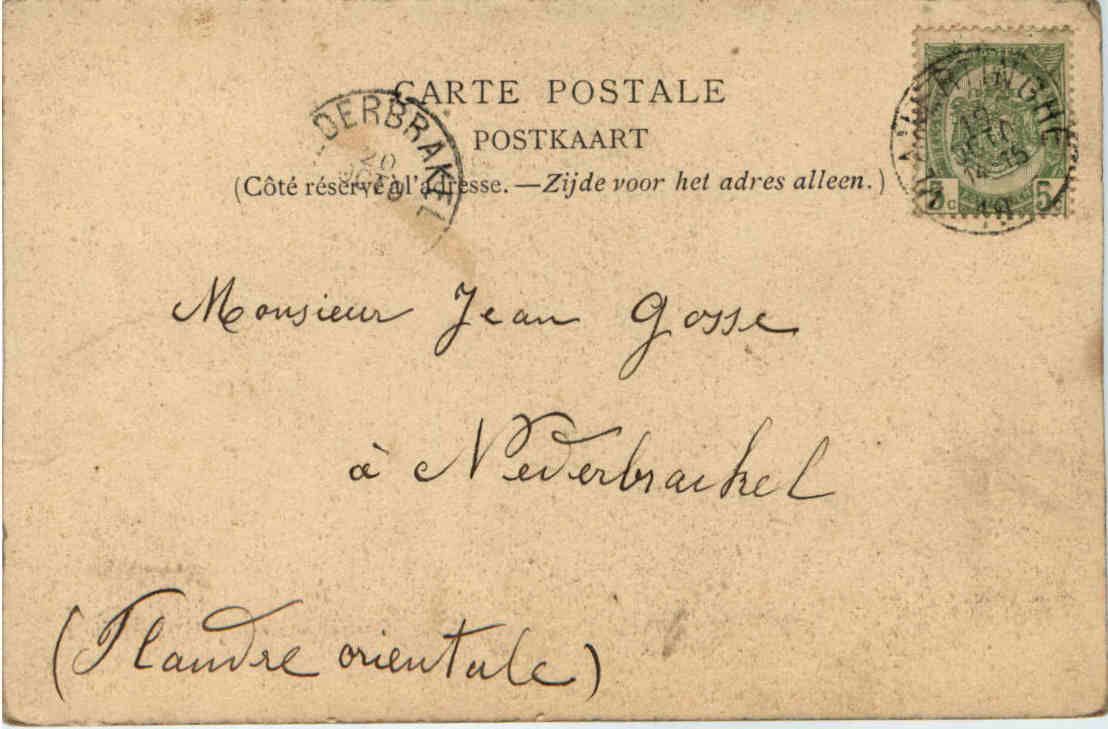 CARTE POSTALE
POSTKAART
(Côté réservé à l'adresse. — Zijde voor het adres alleen.)
DERBRAKEL
20
5 c 5 c
Monsieur Jean Gosse
à Nederbraekel
(Flandre orientale)